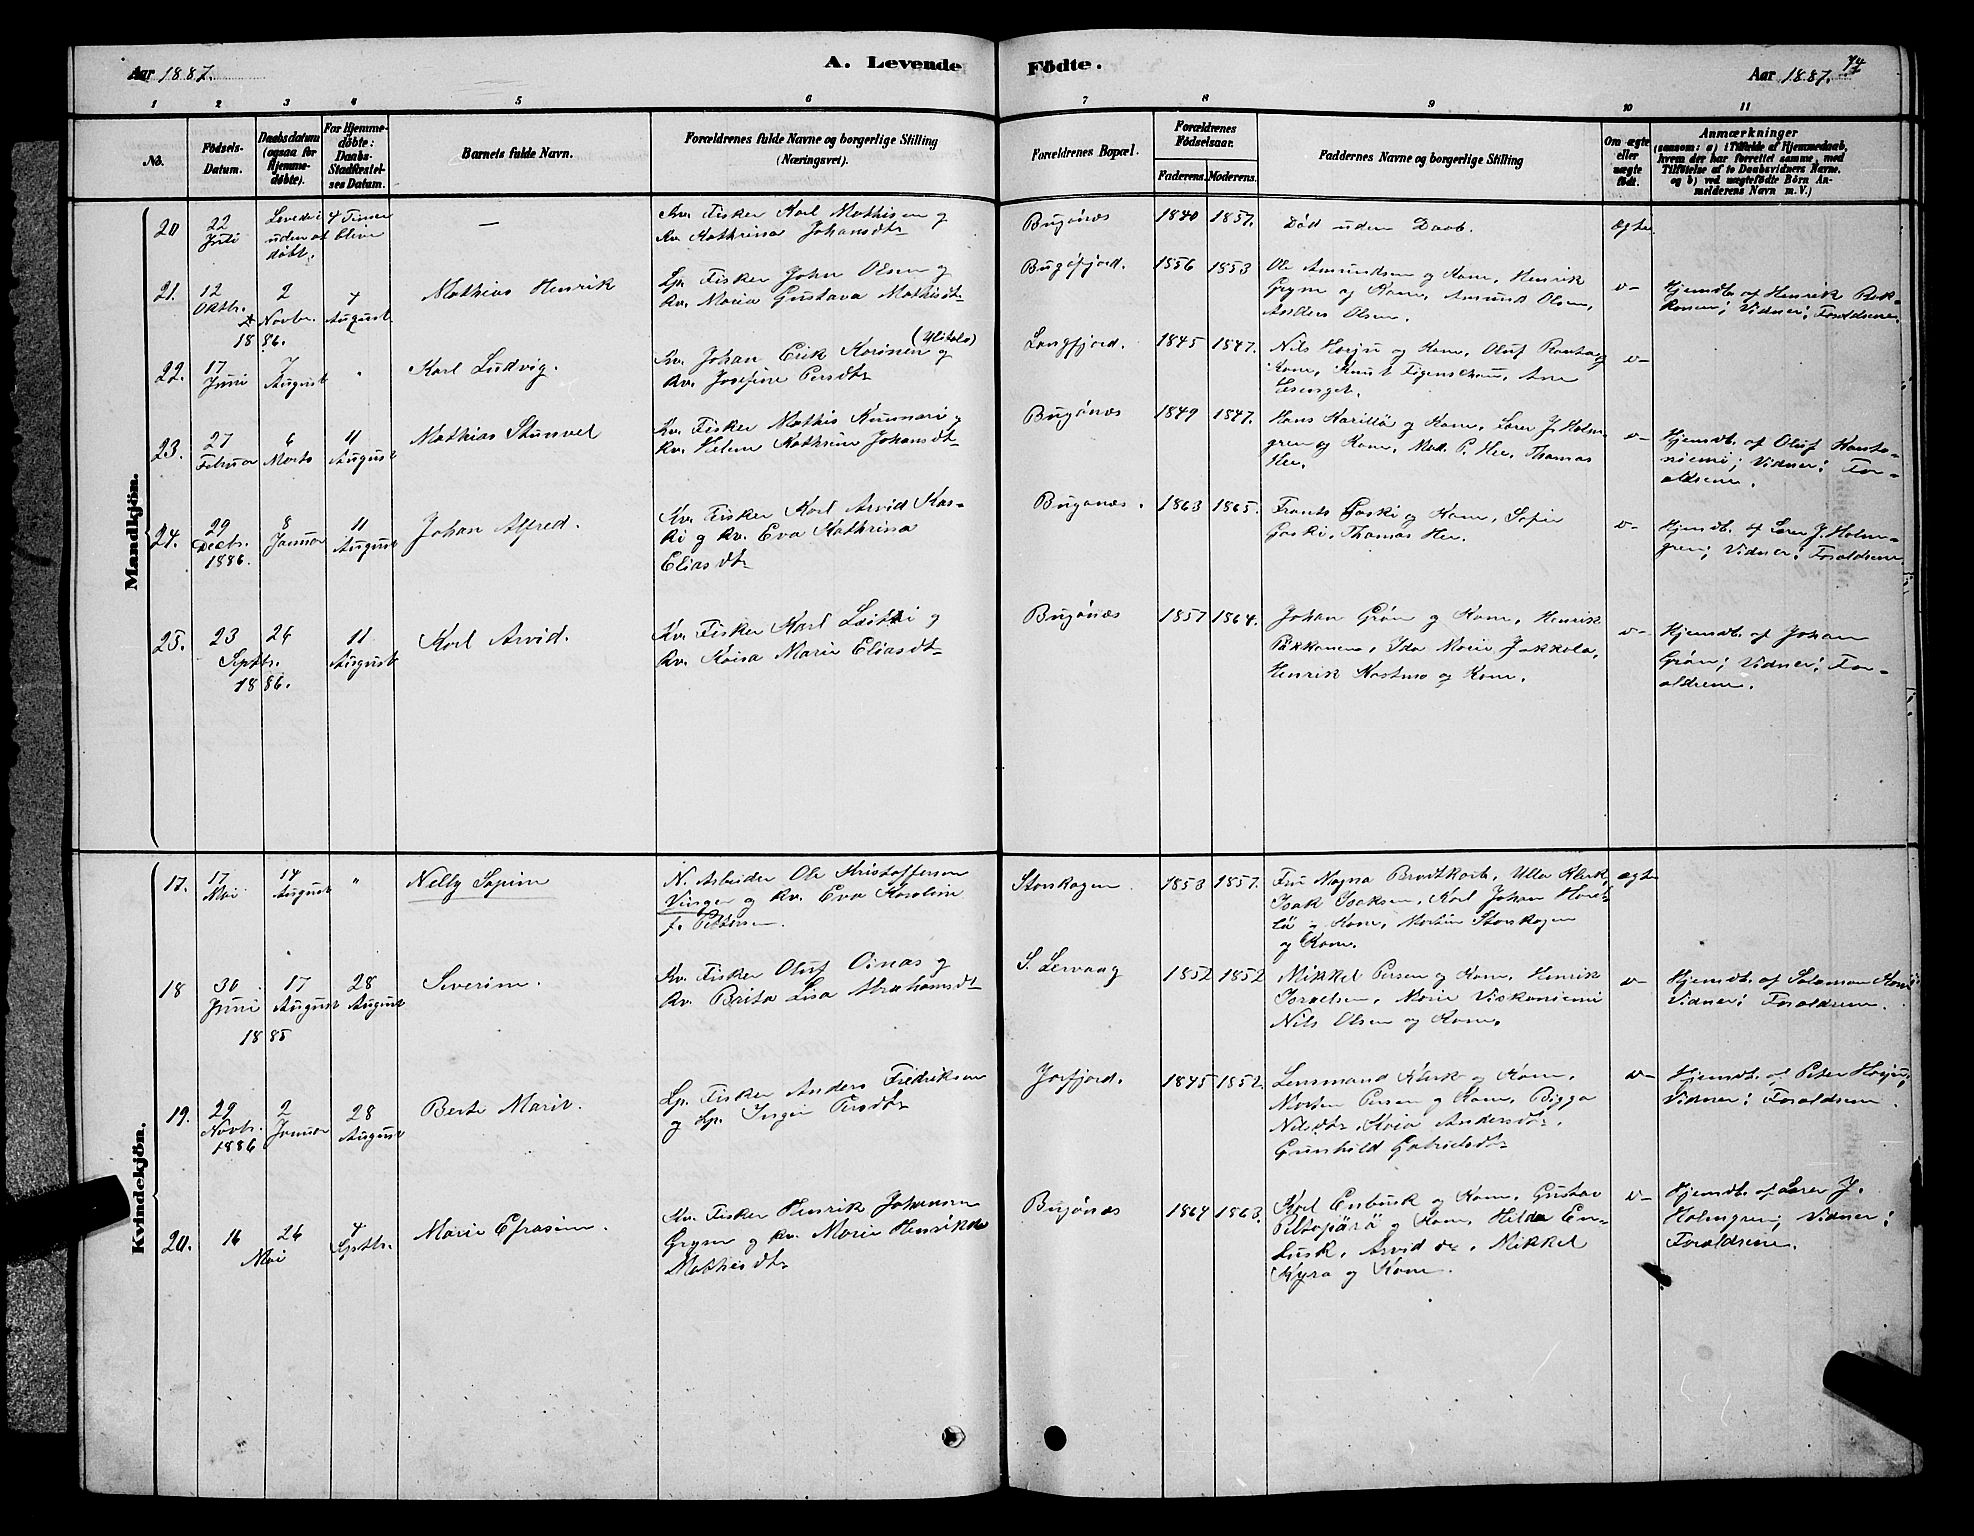 Aar 1887.
A. Levende Fødte.
Aar 1887.
74
1 2 3 4 5 6 7 8 9 10 11
No.
Fødsels-Datum.
Daabsdatum (ogsaa for Hjemme-døbte).
For Hjemme-døbte: Daabs-Stadfæstel-ses Datum.
Barnets fulde Navn.
Forældrenes fulde Navne og borgerlige Stilling
(Næringsvei).
Forældrenes Bopæl.
Forældrenes Fødselsaar.
Faderens. Moderens.
Faddernes Navne og borgerlige Stilling
Om ægte eller uægte født.
Anmærkninger
(saasom: a) i Tilfælde af Hjemmedaab,
hvem der har forrettet samme, med
Tilføielse af to Daabsvidners Navne.
og b) ved uægtefødte Børn An-
melderens Navn m. V.)
Mandkjön.
20
22 Juli
Levede i 4 Timer
uden at blive
døbt.
—
Kv. Fisker Karl Mathisen og
Kv. Kathrina Johansdtr
Bugönæs
1840
1857.
Død uden Daab.
Ægte
21.
12 Oktbr. 1886.
2 Novbr.
4 August
Mathias Henrik
Lp. Fisker John Olsen og
Kv. Maria Gustava Mathisdtr
Bugöfjord.
1856
1853
Ole Amundsen og Kone, Henrik
Grym og Kone, Amund Olsen,
Anders Olsen.
"-
Hjemdb. af Henrik
Vidner: Forældrene.
22.
17 Juni
7 August
"
Karl Ludvig.
Kv. Johan Erik Korinen og
Kv. Josefine Persdtr
Langfjord.
1845
1847.
Nils Harju og Kone, Oluf
Kone, Knut Figenschau, Ane
"-
23.
27 Februar
6 Marts
11 August
Mathias
Kv. Fisker Mathis Kuunari og
Kv. Helene Kathrine Johansdtr
Bugönæs
1849
1847.
Hans Karillä og Kone, Lærer J. Holm-
gren og Kone, P. Hee, Thomas
Hee.
"-
Hjemdb. af Oluf Kanta-
niemi; Vidner: For-
ældrene.
24.
29 Decbr. 1886.
8 Januar
11 August
Johan Alfred.
Kv. Fisker Karl Arvid Kas-
ki og Kv. Eva Kathrina
Eliasdtr
Bugönæs.
1863
1865.
Frants Gaski og Kone, Sofie
Gaski, Thomas Hee.
"-
Hjemdb. af Lærer J. Holm-
gren; Vidner: Forældrene
25.
23 Septbr. 1886.
26
11 August
Karl Arvid.
Kv. Fisker Karl og
Kv. Kaisa Marie Eliasdtr
Bugönæs
1857
1864.
Johan Grön og Kone, Henrik
Päkkonen, Ida Marie Jakkola,
Henrik og Kone.
"-
Hjemdb. af Johan
Grön; Vidner: For-
ældrene.
Kvindekjön.
17.
17 Mai
14 August
"
Nelly Sofine
N. Arbeider Ole Kristofferson
Vinger og Kv. Eva Karoline
f. Pettersen.
Storskogen
1853
1857.
Fru Magna Brodtkorb, Ulla Klerk,
Isak Isaksen, Karl Johan
og Kone, Morten Storskogen
og Kone.
ægte
18
30 Juni 1885
17 August
28 August
Severine.
Kv. Fisker Oluf Oinas og
Kv. Brita Lisa Abrahamsdtr
S. Leirvaag
1852
1852
Mikkel Persen og Kone, Henrik
Israelsen, Marie Viskaniemi
Nils Olsen og Kone.
"-
Hjemdb. af Salamon
Vidner: Forældrene.
19.
29 Novbr. 1886
2 Januar
28 August
Berte Marie.
Lp. Fisker Anders Fredriksen
og Lp. Inger Persdtr
Jarfjord.
1845
1852.
Lensmand Klerk og Kone,
Morten Persen og Kone, Bigga
Nilsdtr, Andersdtr,
Gunhild Gabrielsdtr
"-
Hjemdb. af Peter Harju,
Vidner: Forældrene.
20.
16 Mai
26
4 Septbr.
Marie Efrasine.
Kv. Fisker Henrik Johansen
Grym og Kv. Marie Henrikke
Mathisdtr
Bugönæs
1864
1863.
Karl Enbusk og Kone, Gustav
Peltopärä og Kone, Hilda En-
busk, Arvid do, Mikkel
Kyrö og Kone.
"-
Hjemdb. af Lærer J.
Holmgren; Vidner:
Forældrene.